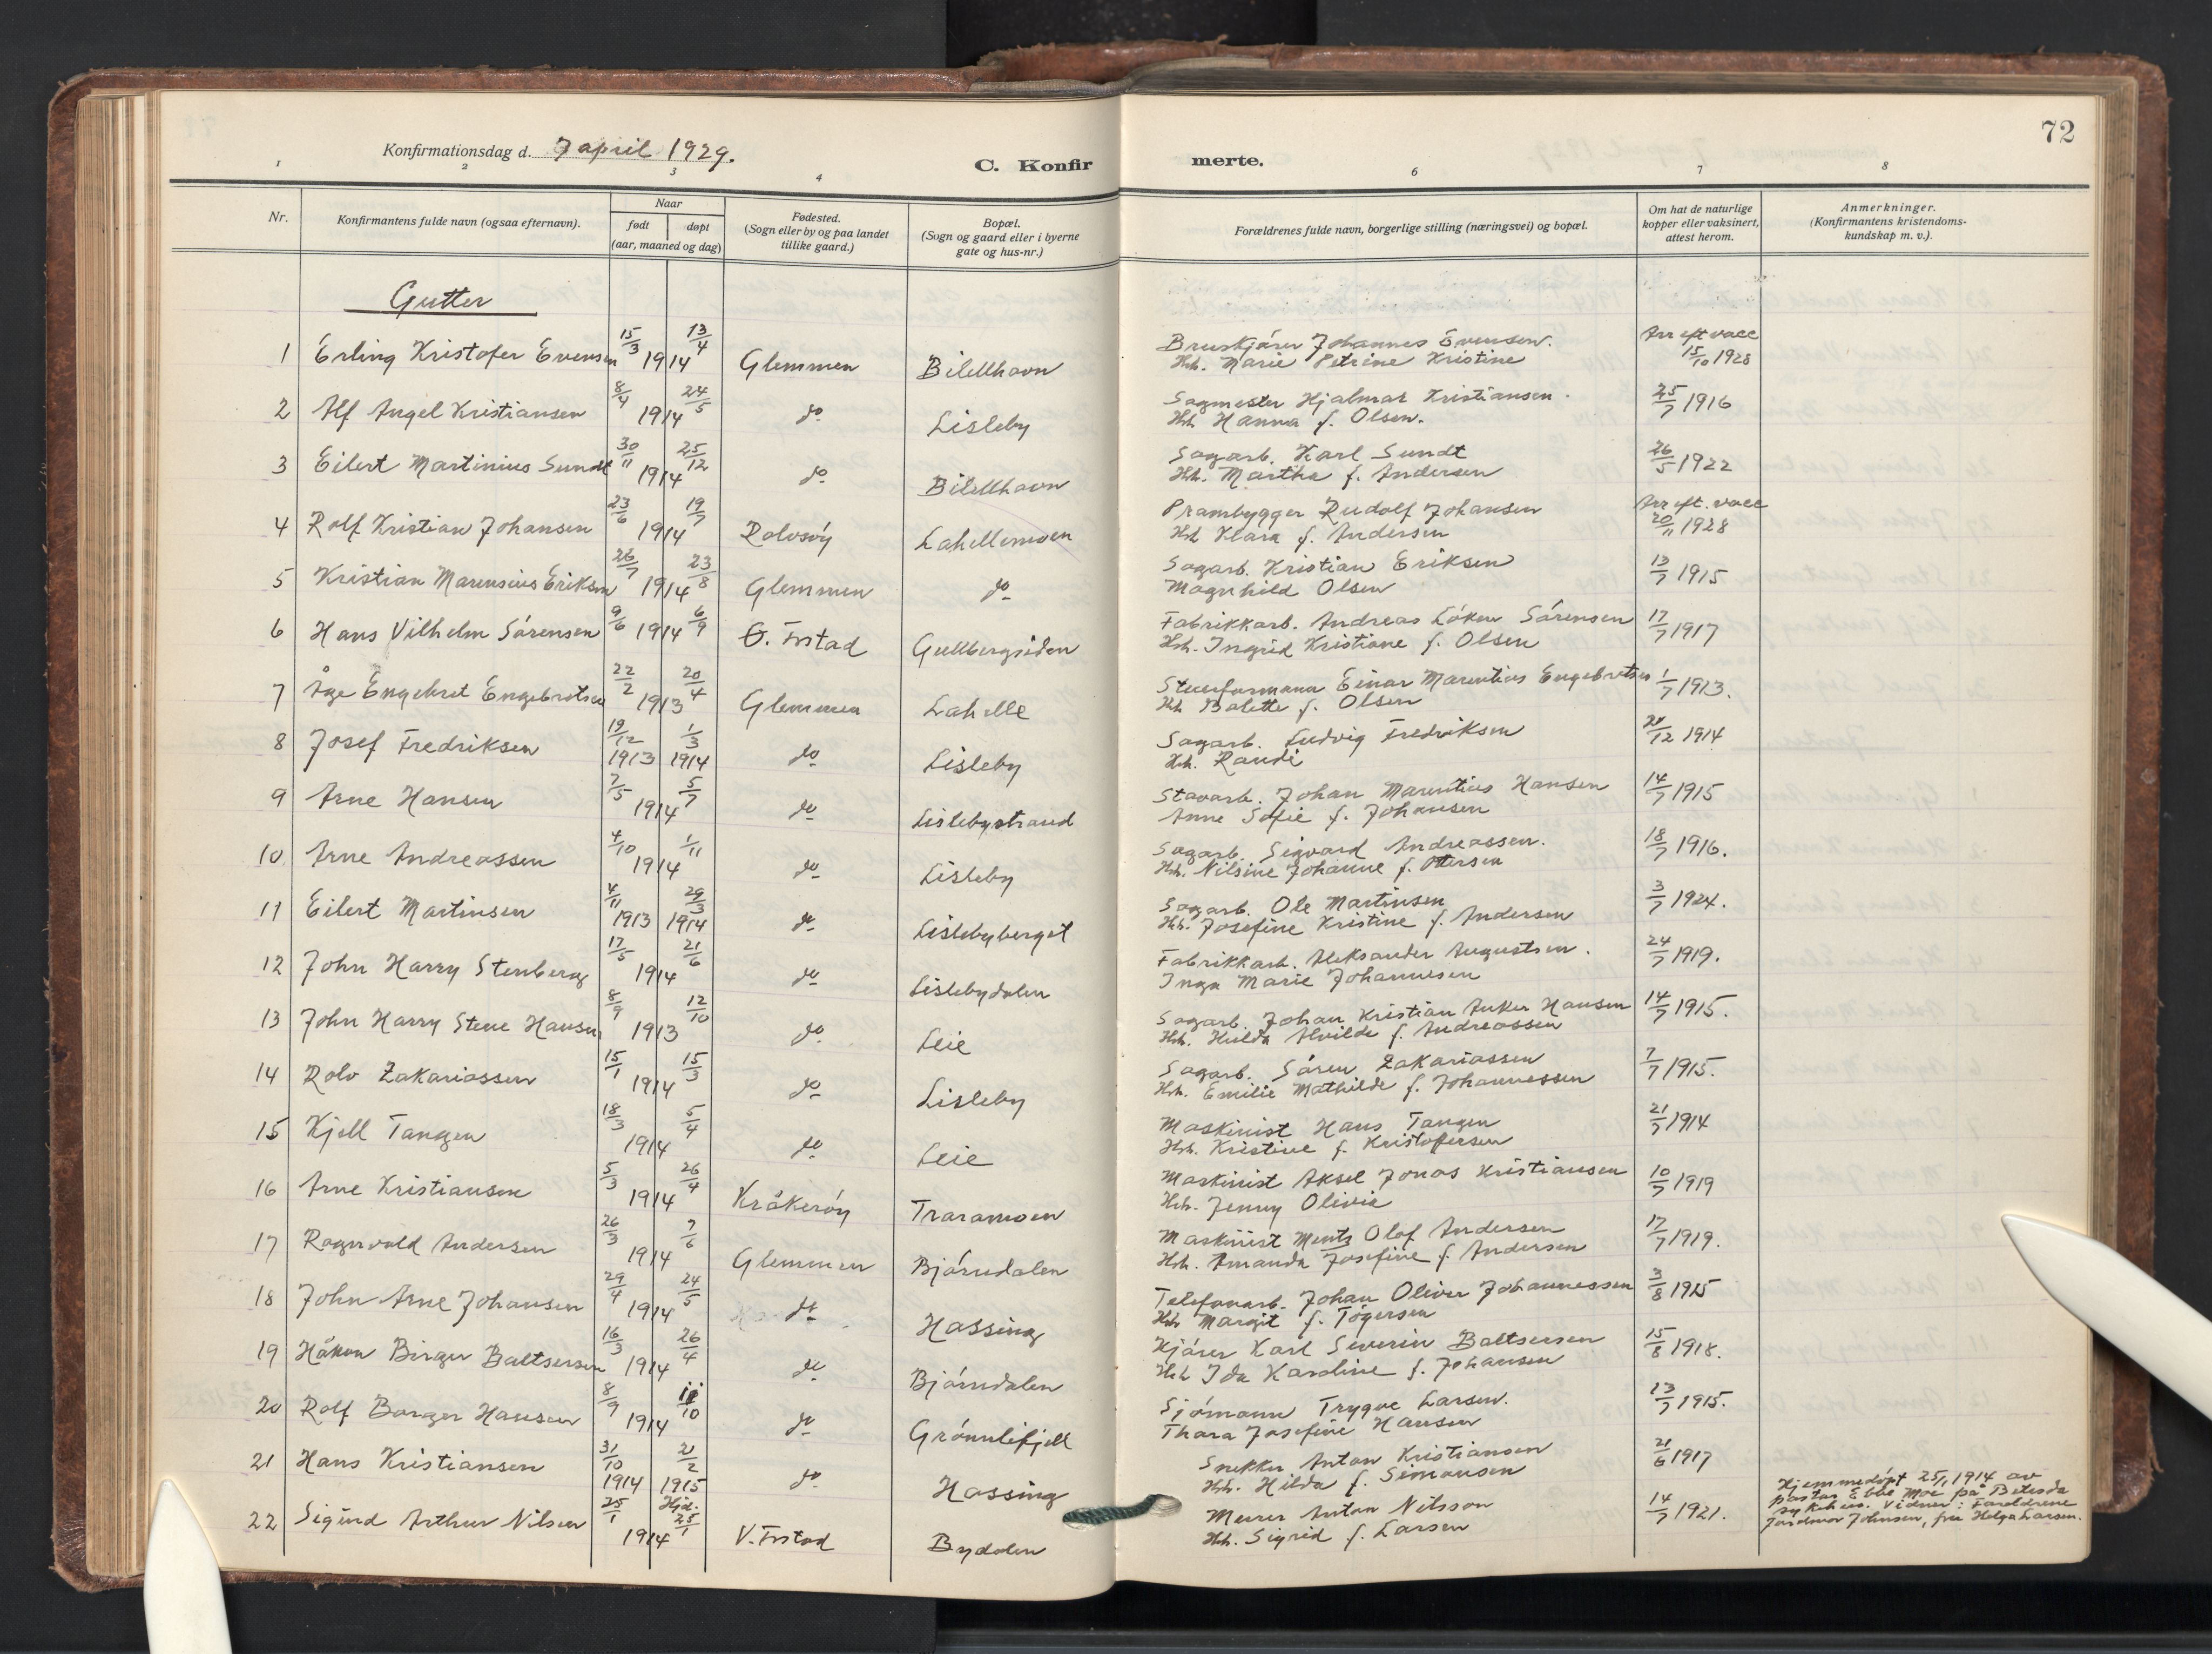 72
Konfirmationsdag d. 7 april 1929.
C. Konfirmerte.
1 2 3 4 6 7 8
Nr.
Konfirmantens fulde navn (ogsaa efternavn).
Naar
født døpt
(aar, maaned og dag)
Fødested.
(Sogn eller by og paa landet
tillike gaard.)
Bopæl.
(Sogn og gaard eller i byerne
gate og hus-nr.)
Forældrenes fulde navn, borgerlige stilling (næringsvei) og bopæl.
Om hat de naturlige
kopper eller vaksinert,
attest herom.
Anmerkninger.
(Konfirmantens kristendoms-
kundskap m. v.).
Gutter
1 Erling Kristofer Evensen 15/3 1914 13/4 Glemmen Bilellhavn Bruskjører Johannes Evensen. Arr eft vacc
Hh. Marie Petrine Kristine 15/10 1928
2 Alf Angel Kristiansen 8/4 1914 24/5 do Lisleby Sagmester Hjalmar Kristiansen. 25/7 1916
Hh Hanna f. Olsen.
3 Eilert Martinius Sundt 30/11 1914 25/12 do Bilellhavn Sagarb. Karl Sundt 26/5 1922
Hh. Martha f. Andersen
4 Rolf Kristian Johansen 23/6 1914 19/7 Rolvsöy Lahellemoen Prambygger Rudolf Johansen Arr eft. vacc
Hh Klara f. Andersen 20/11 1928
5 Kristian Marensius Eriksen 26/7 1914 23/8 Glemmen do Sagarb. Kristian Eriksen 13/7 1915
Magnhild Olsen
6 Hans Vilhelm Sörensen 9/6 1914 6/9 G. Frstad Gullbergsiden Fabrikkarb. Andreas Löken Sörensen 17/7 1917
Hh. Ingrid Kristiane f. Olsen
7 Åge Engebret Engebretsen 22/2 1913 20/4 Glemmen Lahelle Stueformann Einar Marentius Engebretsen 1/7 1913.
Hh Bolette f. Olsen
8 Josef Fredriksen 19/12 1913 1/3 1914 do Lisleby Sagarb. Ludvig Fredriksen 20/12 1914
Hh. Randi
9 Arne Hansen 7/5 1914 5/7 do Lislebystrand Stavarb. Johan Marentius Hansen 14/7 1915
Anne Sofie f. Johansen
10 Arne Andreassen 4/10 1914 1/11 do Lisleby Sagarb. Sigvard Andreassen. 18/7 1916.
Hh. Nilsine Johanne f. Ottersen
11 Eilert Martinsen 4/11 1913 29/3 1914 do Lislebyberget Sagarb. Ole Martinsen 3/7 1924.
Hh. Josefine Kristine f. Andersen
12 John Harry Stenberg 17/5 1914 21/6 do Lislebydalen Fabrikkarb. Aleksander Augustsen. 24/7 1919.
Inga Marie Johannesen
13 John Harry Stene Hansen 8/9 1913 12/10 do Leie Sagarb. Johan Kristian Anker Hansen 14/7 1915.
Hh. Hulda Alvilde f. Andreassen
14 Rolv Zakariassen 15/1 1914 15/3 do Lisleby Sagarb. Sören Zakariassen 7/7 1915.
Hh. Emilie Mathilde f. Johannessen
15 Kjell Tangen 18/3 1914 5/4 do Leie Maskinist Hans Tangen 21/7 1914
Hh. Kristine f. Kristofersen
16 Arne Kristiansen 5/3 1914 26/4 Kråkeröy Traramoen Maskinist Aksel Jonas Kristiansen 10/7 1919
Hh. Jenny Olivie
17 Ragnvald Andersen 26/3 1914 7/6 Glemmen Björndalen Maskinist Mentz Olaf Andersen 17/7 1919.
Hh. Amanda Josefine f. Andersen
18 John Arne Johansen 29/4 1914 24/5 do Hassing Telefonarb. Johan Oliver Johannessen 3/8 1925
Hh Margit f. Tögersen
19 Håkon Birger Baltsersen 16/3 1914 26/4 do Björndalen Kjörer Karl Severin Baltsersen 15/8 1918.
Hh Ida Karoline f. Johansen
20 Rolf Borger Hansen 8/9 1914 11/10 do Grönnlifjell Sjömann Trygve Larsen. 13/7 1915.
Thora Josefine Hansen
21 Hans Kristiansen 31/10 1914 21/2 1915 do Hassing Snekker Anton Kristiansen 21/6 1917
Hh. Hilda f. Simonsen
22 Sigurd Arthur Nilsen 25/1 1914 Hjd. 25/1 V. Frstad Bydalen Murer Anton Nilsson 14/7 1921.
Hh. Sigrid f. Larsen
Hjemmedöpt 25/1 1914 av
pastor Ebbe Moe på Betesda
sykehus. Vidner: Foreldrene
Jordmor Johnsen, fru Helga Larsen.